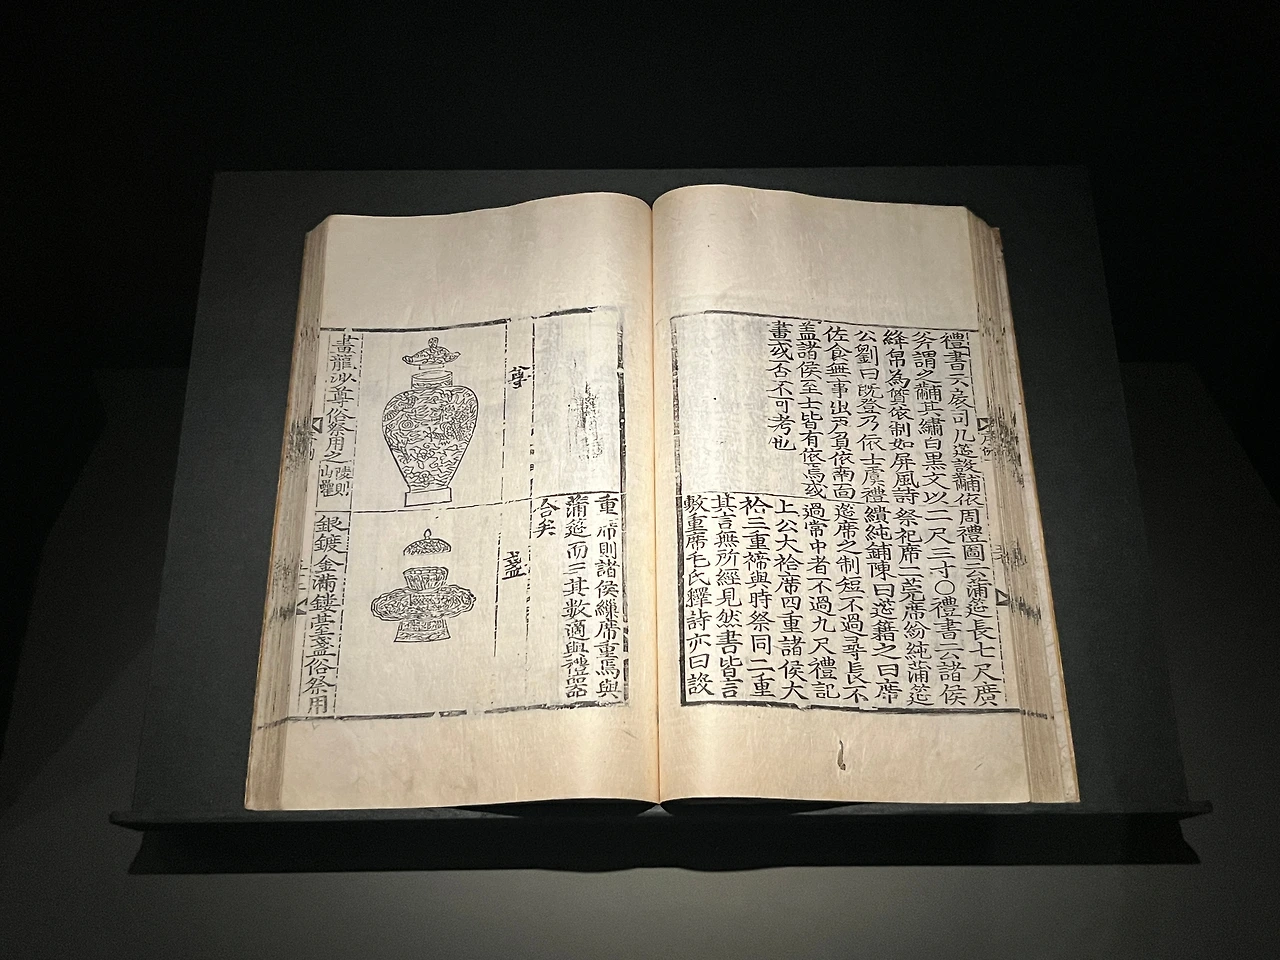 禮書云扆司几筵設黼依
斧謂之黼其繡白黑文以
絳帛為質依制如屏風詩
公劉曰既登乃依士虞禮
佐食無事出戶負依南面
盖諸侯至士皆有依焉或
畫或否不可考也
周禮圖云蒲筵長七尺廣
二尺三寸〇禮書云諸侯
祭祀席二莞席紛純蒲筵
繢純鋪陳曰筵藉之曰席
筵席之制短不過尋長不
過常中者不過九尺禮記
上公大祫席四重諸侯大
祫三重禘與時祭同二重
其言無所經見然書皆言
敷重席毛氏釋詩亦曰設
重席則諸侯繅席重焉與
蒲筵而三其數適與禮器
合矣
尊
畫龍沙尊俗祭用之陵則山罍
盞
銀鍍金滿鏤臺盞俗祭用